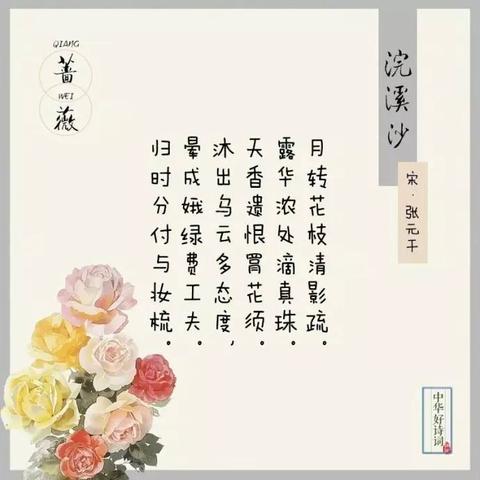 浣溪沙
宋·张元干
月转花枝清影疏。
露华浓处滴真珠。
天香遗恨罥花须。
沐出乌云多态度，
晕成娥绿费工夫。
归时分付与妆梳。
QIANG
蔷
WEI
薇
中华好诗词